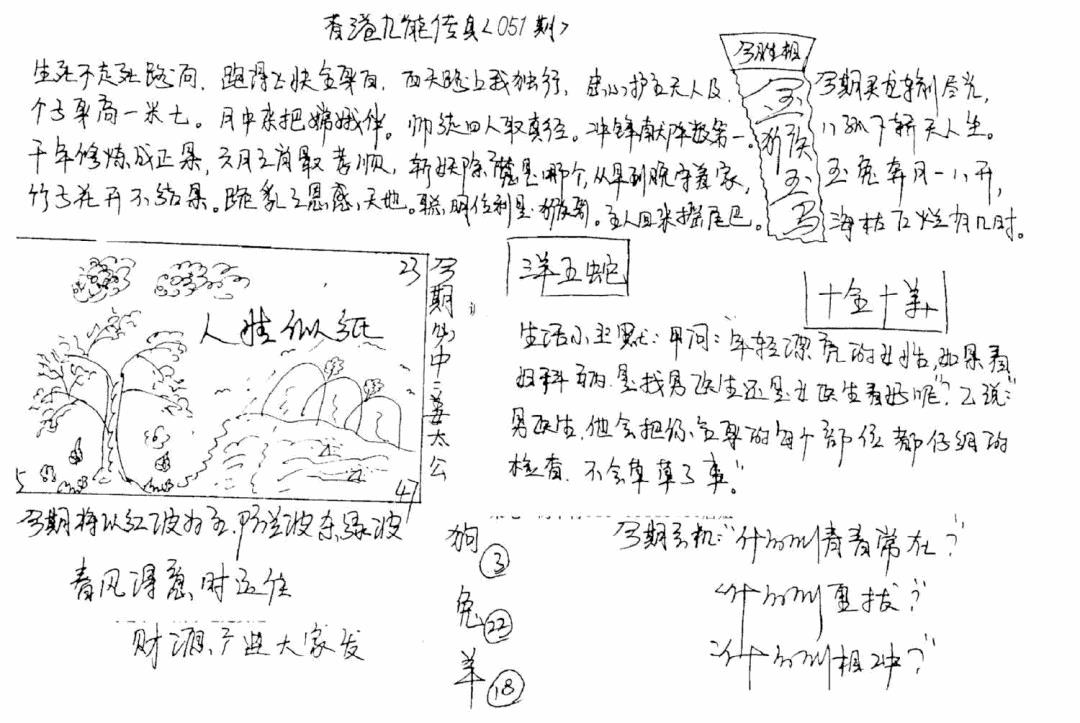 香港九龍传真<051期>
生死不走死路向. 跑得之快全身白. 西天路上我独行, 忠心护主无人及.
个子身高一米七。月中亲把嫦娥伴。师徒四人取真经。冲锋献阵数第一。
千年修炼成正果, 六月之肖最孝顺, 斩妖除魔是哪个, 从早到晚守着家,
竹子花开不结果。跪乳之恩感天地。聪明伶利是猴哥。主人回来摇尾巴。
今期
玉
猴
玉
马
今期
玉兔奔月一八开,
海枯石烂有几时。
23
人性似纸
5
47
今期必中三姜太公
三羊五蛇
十全十羊
生活小幽默: 甲问:"年轻漂亮的女性, 如果看
妇科病. 是找男医生还是女医生看好呢"? 乙说:"
男医生, 他会把你全身的每个部位都仔细的
检查. 不会草草了事。"
今期将以红波为主, 防兰波杀绿波
春风得意时运佳
财源产进大家发
狗
③
兔
㉒
羊
⑱
今期玄机:"什么叫青春常在?"
"什么叫
"什么叫相冲?"